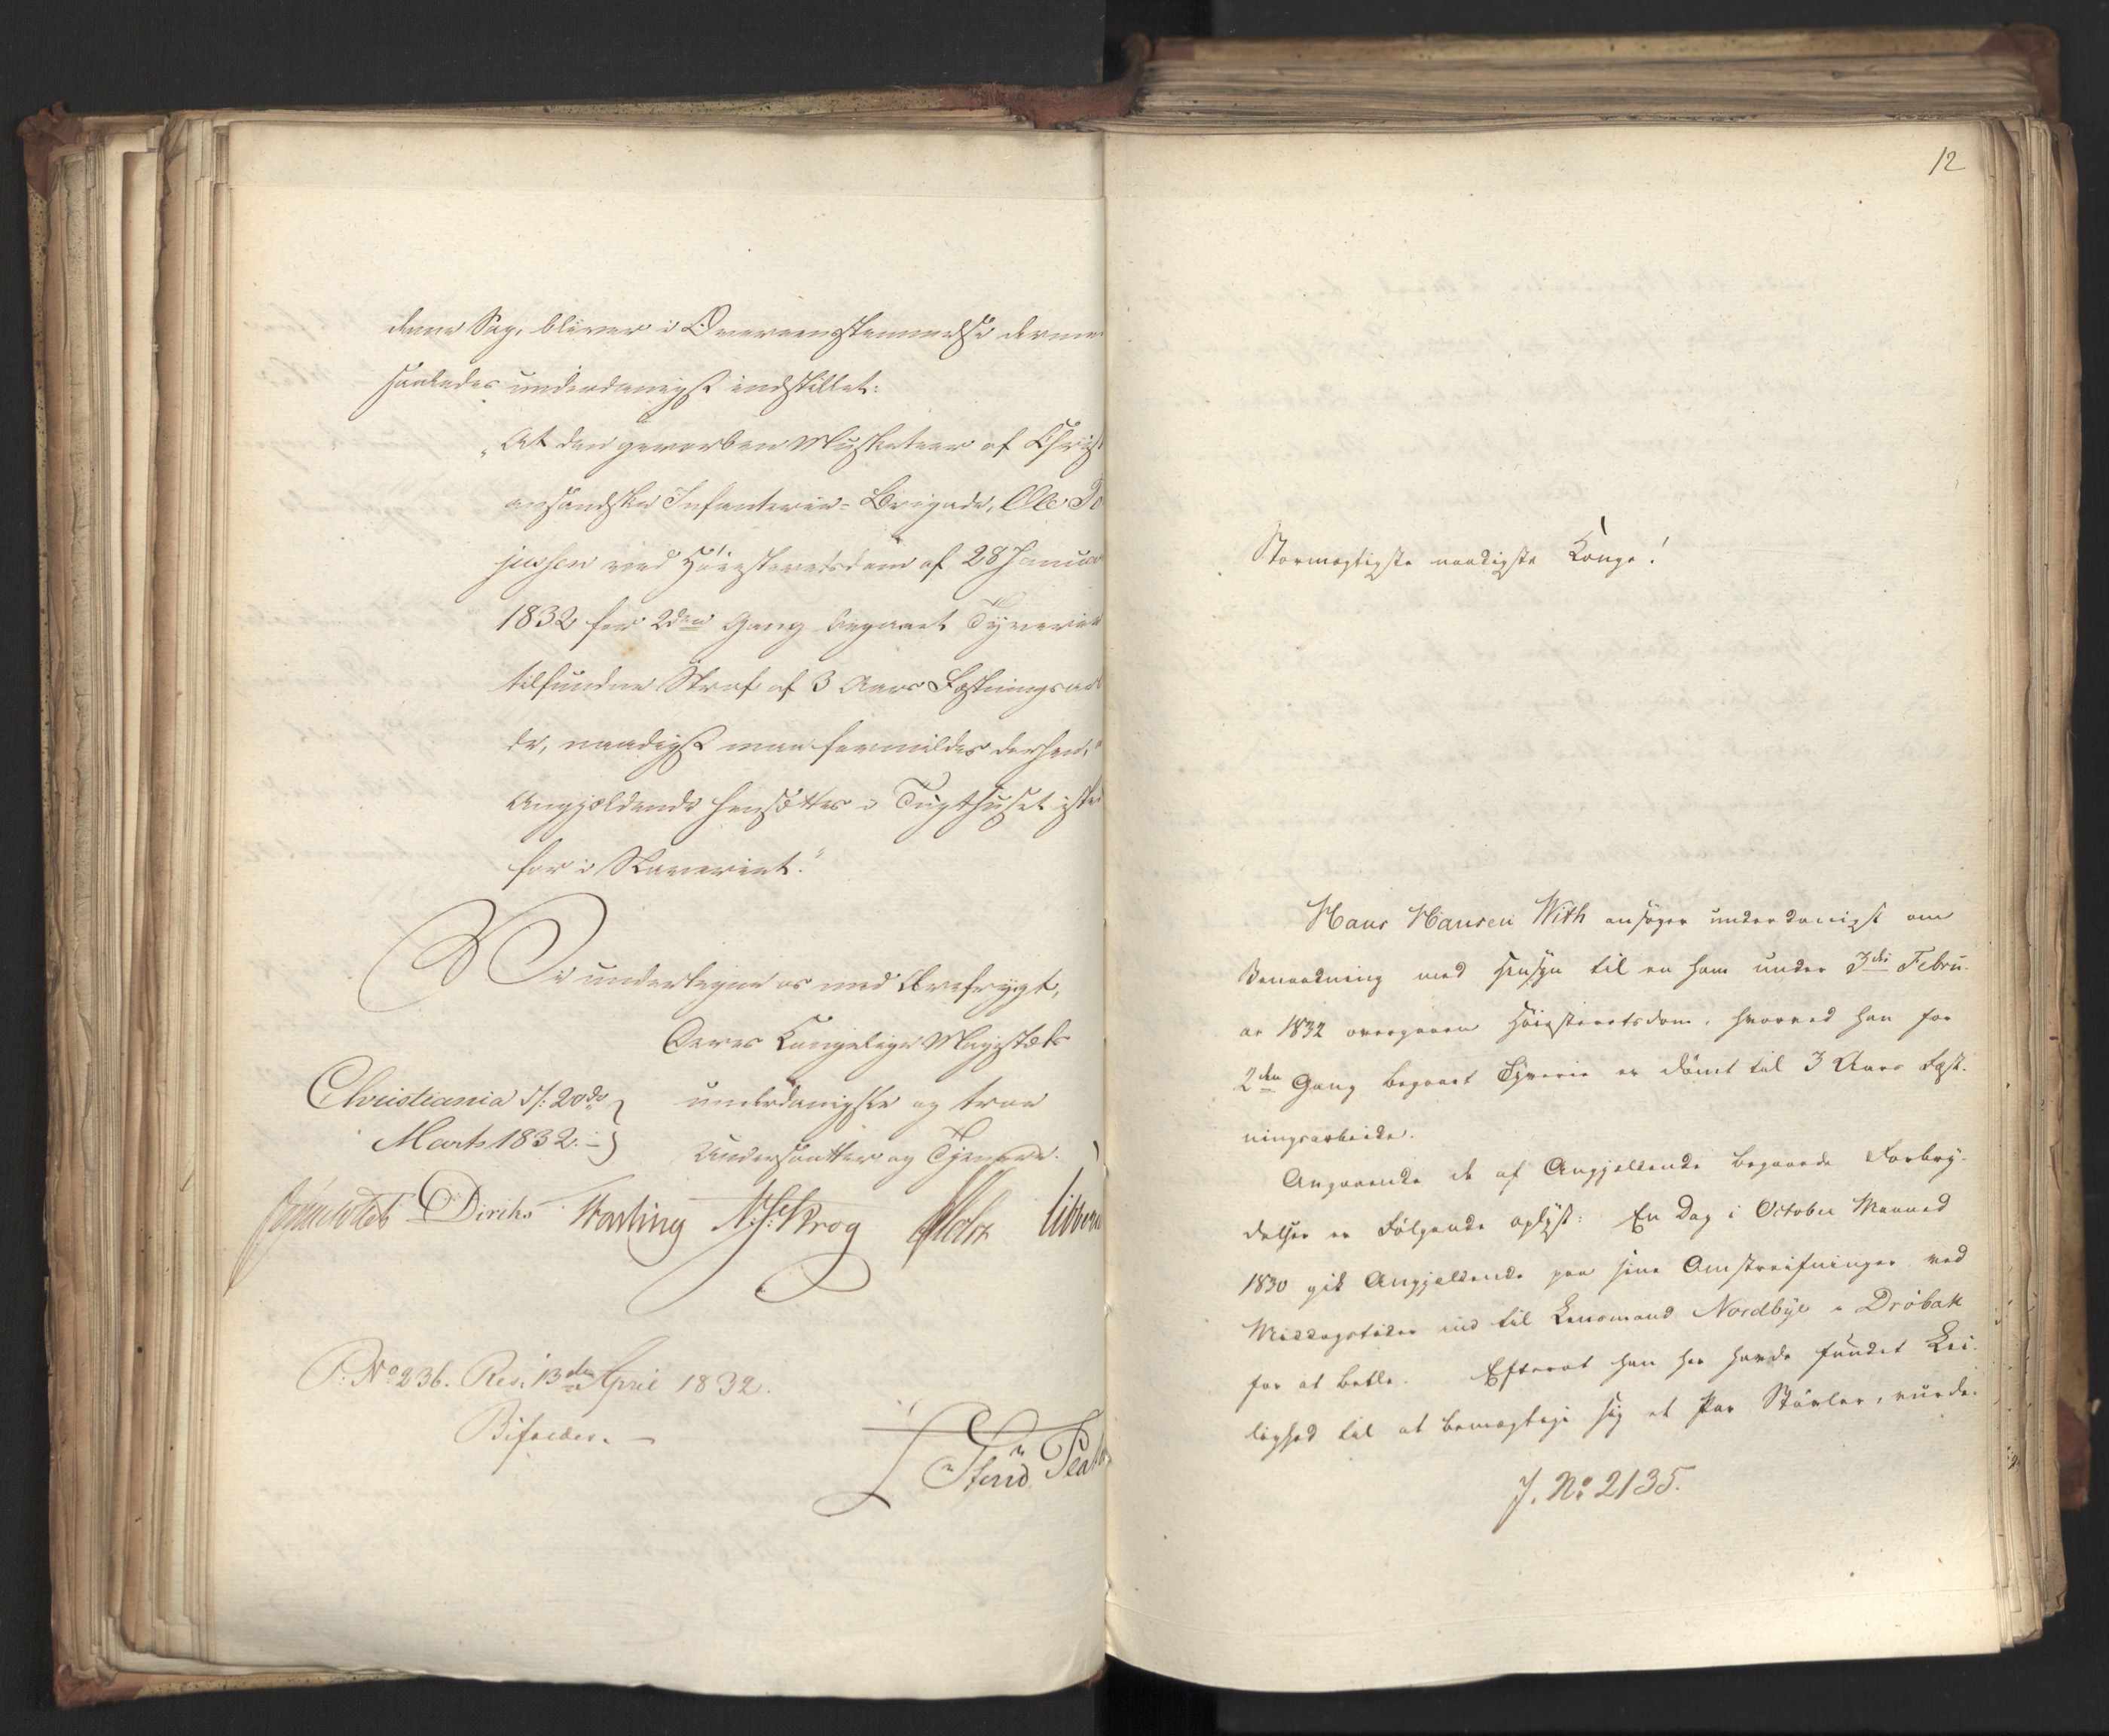 denne Sag, bliver i Overeensstemmelse derme
saaledes underdanigst indstillet:
„At den gevorben Musketeer af Christ
ansandske Infanterie-Brigade, Ole To
jussen ved Höiesteretsdom af 28 Januar
1832 for 2den Gang begaaet Tyverie
tilfundne Straf af 3 Aars Fæstningsar
de, naadigst maa formildes derhen,
Angjældende hensættes i Tugthuset iste
for i Slaveriet."
Vi undertegne os med Ærefrygt,
Deres Kongelige Majestæts
Christiania d: 20de
underdanigste og troe
Marts 1832.
Undersaatter og Tjenere.
Diriks Harling N: J: Krog Holst
P: No 236. Res. 13de April 1832.
Bifaldes.
12
Stormægtigste naadigste Konge!
Hans Hansen With ansøger underdanigst om
Benaadning med Hensyn til en ham under 3die Febru-
ar 1832 overgaaen Höiesteretsdom, hvorved han for
2den Gang begaaet Tyverie er dömt til 3 Aars Fæst-
ningsarbeide.
Angaaende de af Angjeldende begaaede Forbry-
delser er Fölgende oplyst: En Dag i October Maaned
1830 gik Angjeldende paa sine Omstreifninger ved
Middagstider ind til Lensmand Nordbye i Dröbak
for at betle. Efterat han her havde fundet Lei-
lighed til at bemægtige sig et Par Stövler, vurde-
J. No 2135.